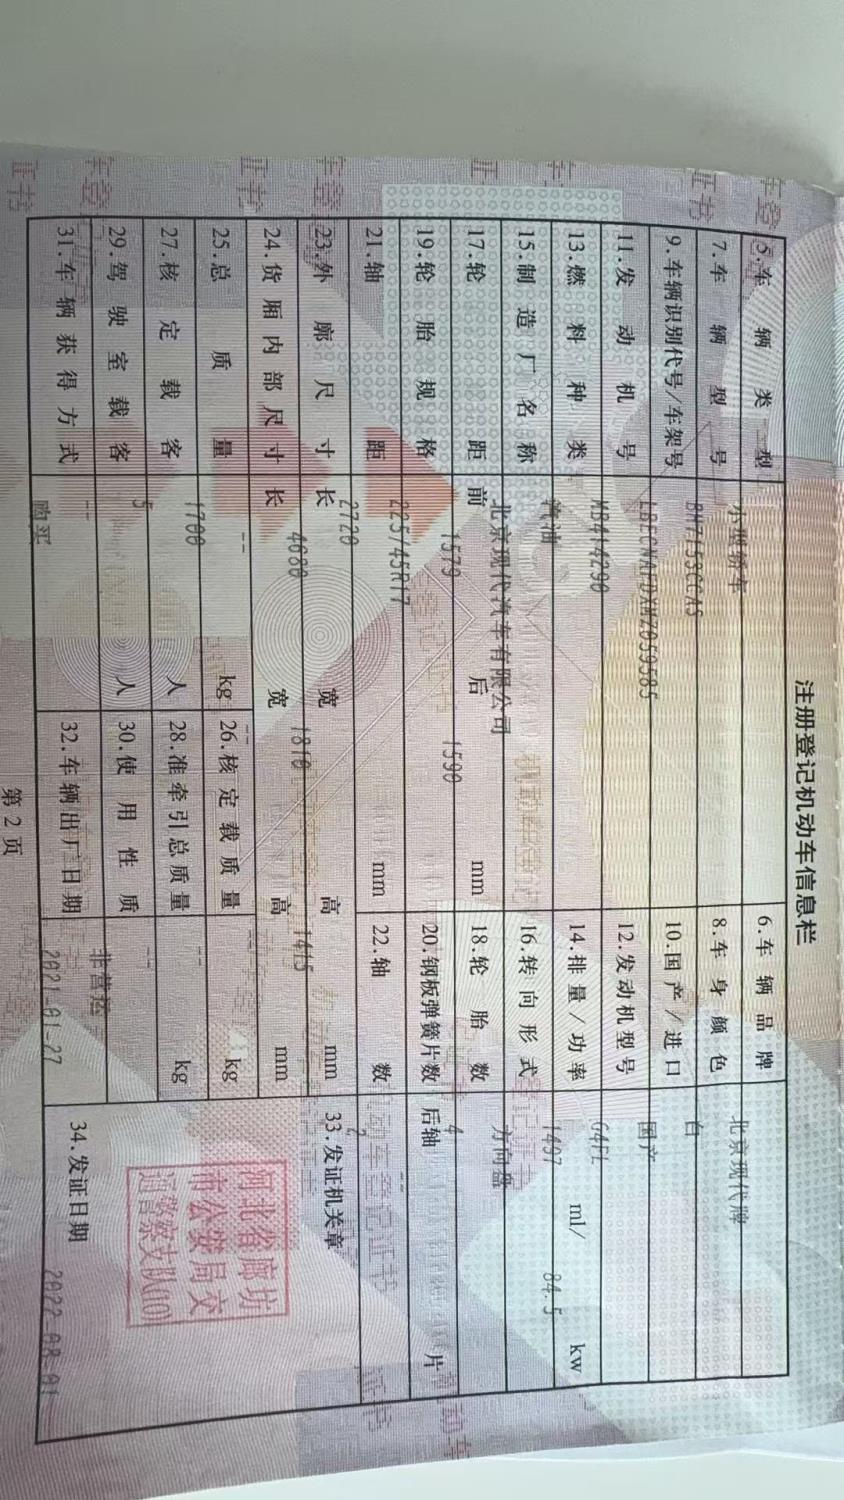 注册登记机动车信息栏
5.车辆类型 小型轿车 6.车辆品牌 北京现代牌
7.车辆型号 BH7153CCAS 8.车身颜色 白
9.车辆识别代号/车架号 10.国产/进口 国产
11.发动机号 MB414290 12.发动机型号 G4FL
13.燃料种类 汽油 14.排量/功率 1497 ml/ 84.5 kw
15.制造厂名称 北京现代汽车有限公司 16.转向形式 方向盘
17.轮距 前 1579 后 1590 mm 18.轮胎数 4
19.轮胎规格 225/45R17 20.钢板弹簧片数 后轴 -- 片
21.轴距 2720 mm 22.轴数 2
23.外廓尺寸 长 4680 宽 1810 高 1415 mm 33.发证机关章
24.货厢内部尺寸 长 -- 宽 -- 高 -- mm
25.总质量 1700 kg 26.核定载质量 -- kg
27.核定载客 5 人 28.准牵引总质量 -- kg
29.驾驶室载客 -- 人 30.使用性质 非营运
31.车辆获得方式 购买 32.车辆出厂日期 2021-01-27 34.发证日期 2022-08-01
河北省廊坊
市公安局交
通警察支队(10)
第2页